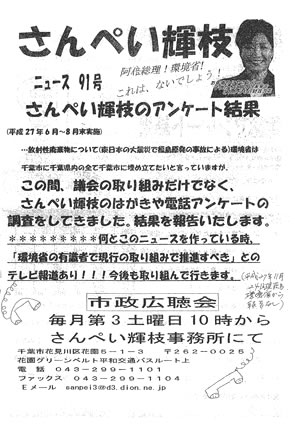 さんぺい輝枝
ニュース 91号
阿倍総理！環境省！
これは、ないでしょう！
さんぺい輝枝のアンケート結果
(平成27年6月～8月末実施)
…放射性廃棄物について(東日本の大震災で福島原発の事故による)環境省は
千葉市に千葉県内の全て千葉市に埋め立てたいと言っていますが、
この間、議会の取り組みだけでなく、
さんぺい輝枝のはがきや電話アンケートの
調査をしてきました。結果を報告いたします。
＊＊＊＊＊＊＊＊＊何とこのニュースを作っている時、
「環境省の有識者で現行の取り組みで推進すべき」との
テレビ報道あり！！！今後も取り組んで行きます。
(平成27年11月
市政広聴会
毎月第3土曜日10時から
さんぺい輝枝事務所にて
千葉市花見川区花園5－1－3 〒262－0025
花園グリーンベルト平和交通バスルート上
電話 043－299－1101
ファックス 043－299－1104
Eメール sanpei3@d3.dion.ne.jp